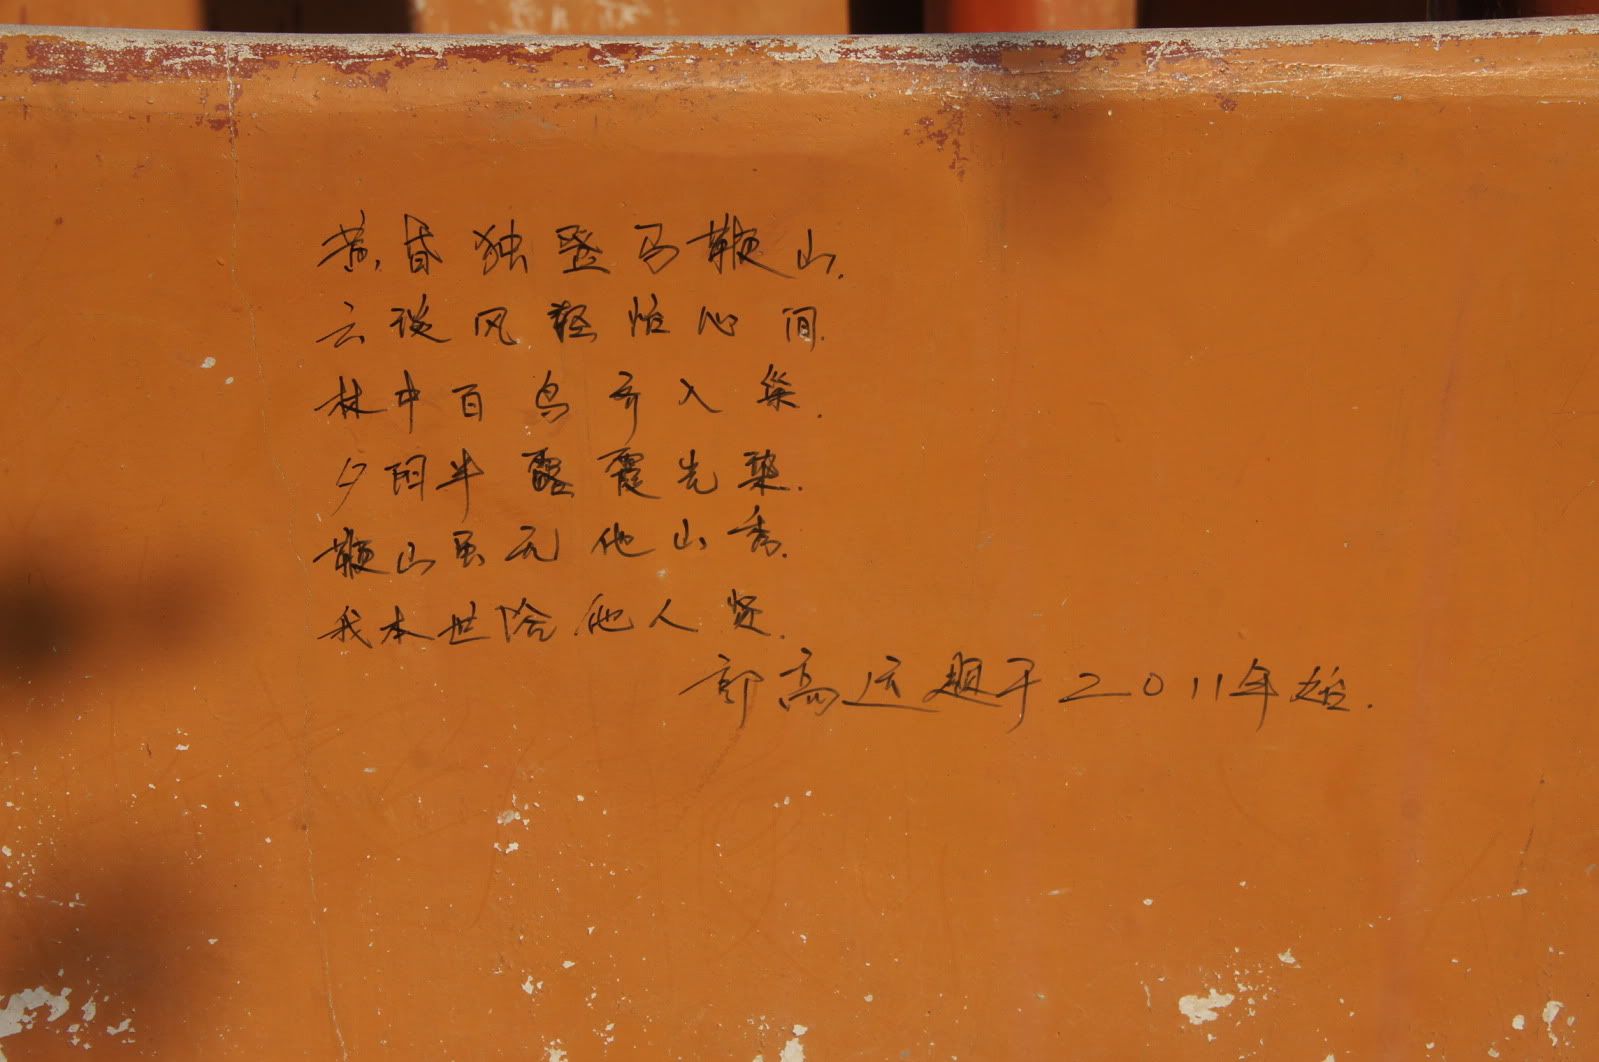 黄昏独登马鞍山.
云谈风轻怡心间.
林中百鸟齐入巢.
夕阳半露霞光染.
鞍山虽无他山秀.
我本世 他人贤.
郭高运题于2011年始.